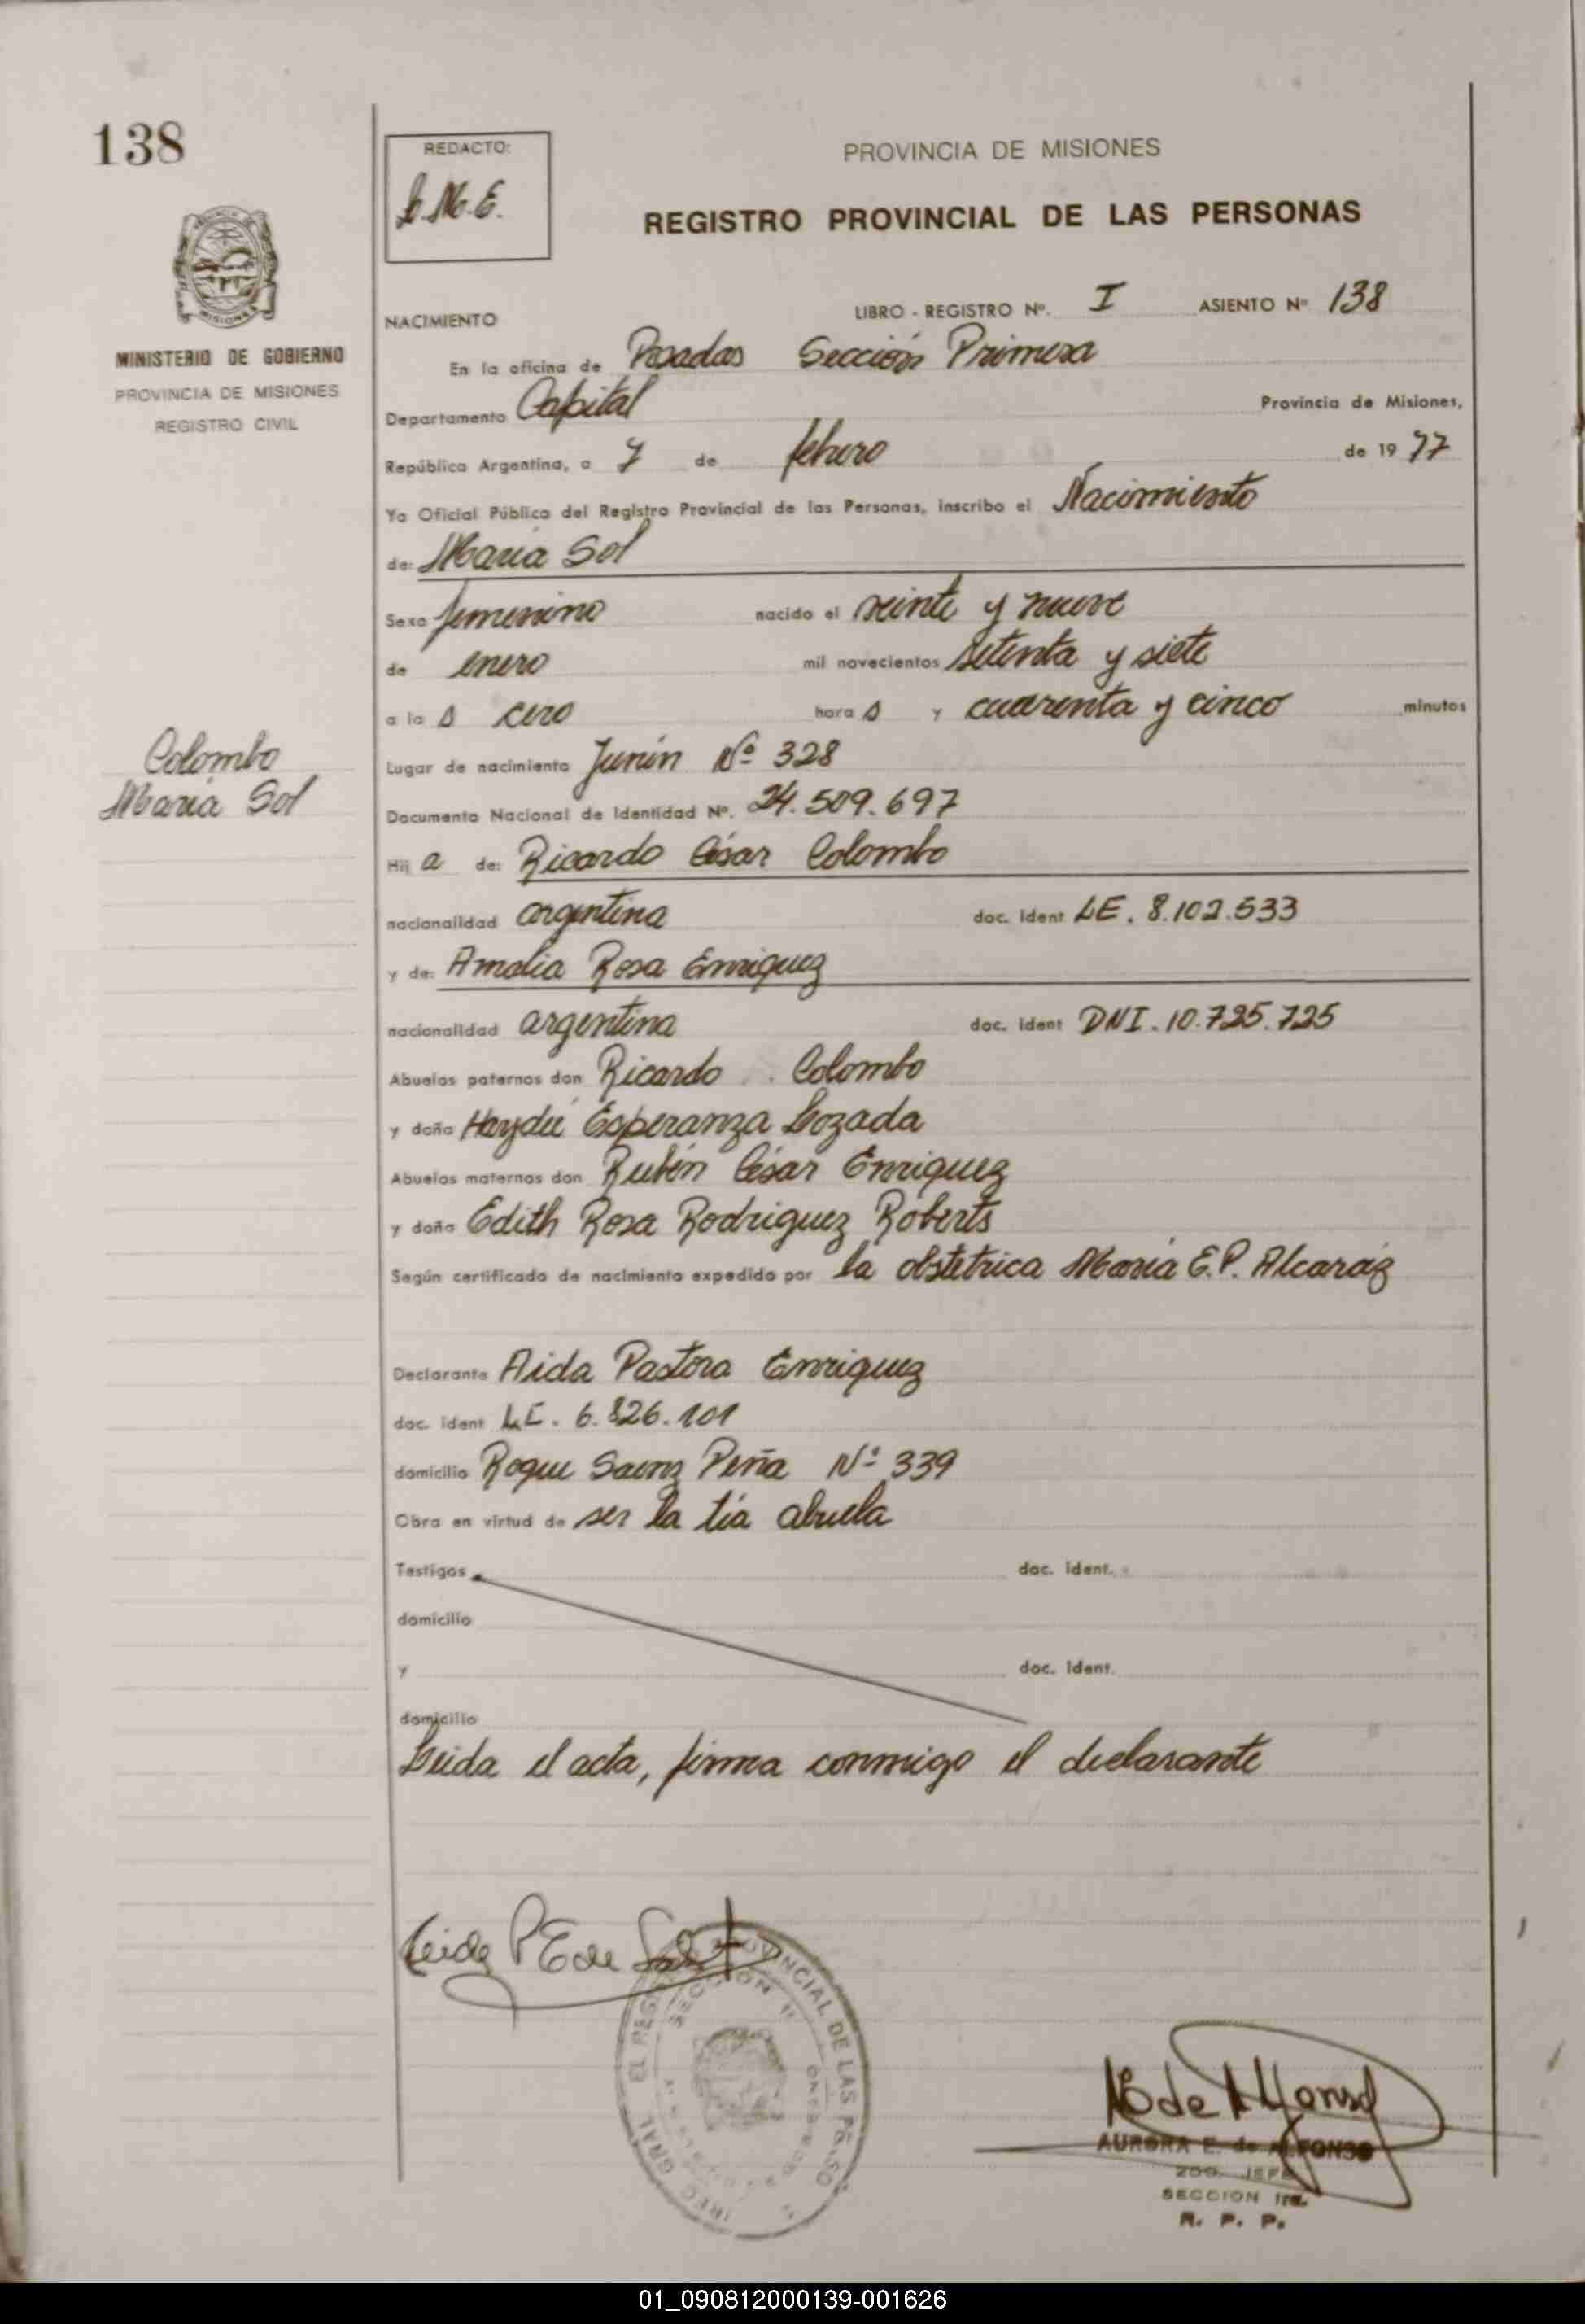 138
REDACTO:
L.M.E.
PROVINCIA DE MISIONES
REGISTRO PROVINCIAL DE LAS PERSONAS
MISIONES
MINISTERIO DE GOBIERNO
PROVINCIA DE MISIONES
REGISTRO CIVIL
NACIMIENTO
LIBRO - REGISTRO Nº. I ASIENTO Nº 138
En la oficina de Posadas Sección Primera
Departamento Capital Provincia de Misiones,
República Argentina, a 7 de febrero de 1977
Yo Oficial Público del Registro Provincial de las Personas, inscribo el Nacimiento
de: María Sol
Sexo femenino nacido el veinte y nueve
de enero mil novecientos setenta y siete
a la s cero hora s y cuarenta y cinco minutos
Colombo
María Sol
Lugar de nacimiento Junín Nº 328
Documento Nacional de Identidad Nº. 24.509.697
Hij a de: Ricardo César Colombo
nacionalidad argentina doc. Ident LE. 8.102.533
y de: Amalia Rosa Enriquez
nacionalidad argentina doc. Ident DNI. 10.725.725
Abuelos paternos don Ricardo Colombo
y doña Haydée Esperanza Lozada
Abuelos maternos don Rubén César Enriquez
y doña Edith Rosa Rodriguez Roberts
Según certificado de nacimiento expedido por la obstetrica María E.P. Alcaráz
Declarante Aida Pastora Enriquez
doc. ident L.C. 6.826.101
domicilio Roque Saenz Peña Nº 339
Obra en virtud de ser la tía abuela
Testigos doc. ident.
domicilio
y doc. Ident.
domicilio
Leida el acta, firma conmigo el declarante
AURORA E. de ALFONSO
2DO. JEFE
SECCION 1ra.
R. P. P.
01_090812000139-001626